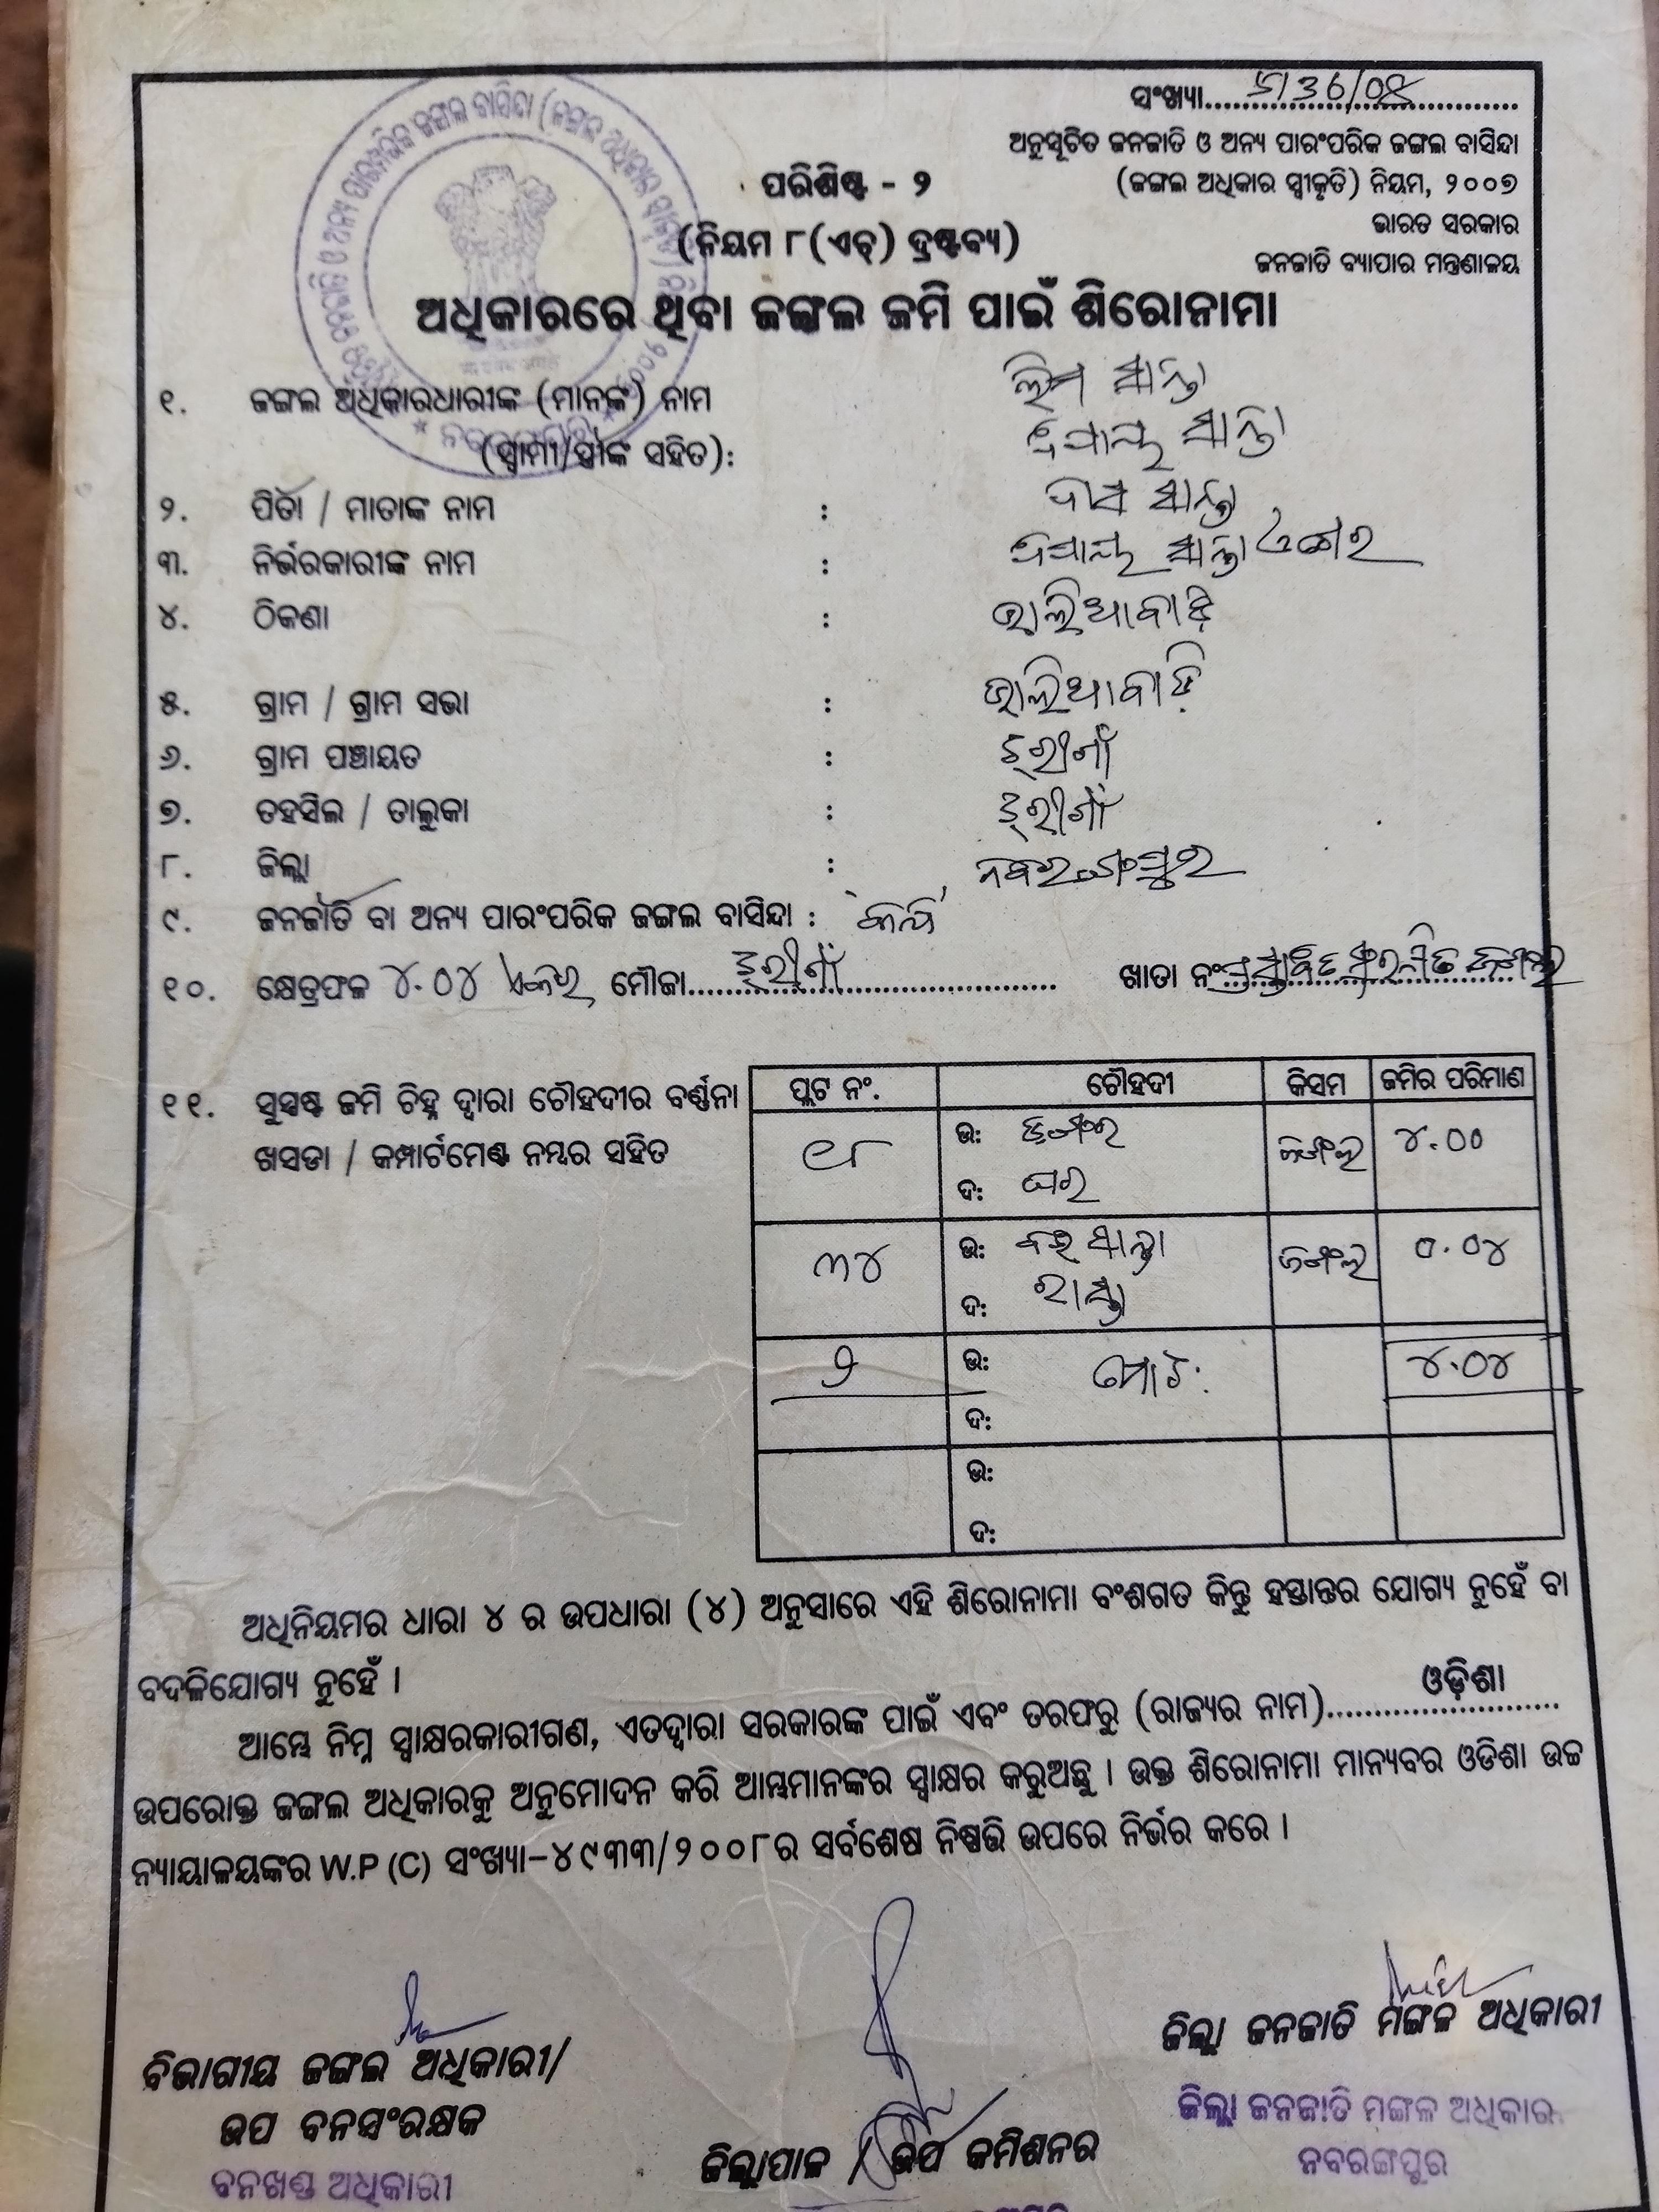 ସଂଖ୍ୟା
ଅନୁସୂଚିତ ଜନଜାତି ଓ ଅନ୍ୟ ପାରଂପରିକ ଜଙ୍ଗଲ ବାସିନ୍ଦା
(ଜଙ୍ଗଲ ଅଧିକାର ସ୍ୱୀକୃତି) ନିୟମ, ୨୦୦୭
ଭାରତ ସରକାର
ଜନଜାତି ବ୍ୟାପାର ମନ୍ତ୍ରଣାଳୟ
ପରିଶିଷ୍ଟ - ୨
(ନିୟମ ୮(ଏଚ୍) ଦ୍ରଷ୍ଟବ୍ୟ)
ଅଧିକାରରେ ଥିବା ଜଙ୍ଗଲ ଜମି ପାଇଁ ଶିରୋନାମା
୧. ଜଙ୍ଗଲ ଅଧିକାରଧାରୀଙ୍କ (ମାନଙ୍କ) ନାମ
(ସ୍ୱାମୀ/ସ୍ତ୍ରୀଙ୍କ ସହିତ):
୨. ପିତା / ମାତାଙ୍କ ନାମ :
୩. ନିର୍ଭରକାରୀଙ୍କ ନାମ :
୪. ଠିକଣା : ଭାଲିଆବାଡ଼ି
୫. ଗ୍ରାମ / ଗ୍ରାମ ସଭା : ଭାଲିଆବାଡ଼ି
୬. ଗ୍ରାମ ପଞ୍ଚାୟତ : ଝରୀଗାଁ
୭. ତହସିଲ / ତାଲୁକା : ଝରୀଗାଁ
୮. ଜିଲ୍ଲା : ନବରଙ୍ଗପୁର
୯. ଜନଜାତି ବା ଅନ୍ୟ ପାରଂପରିକ ଜଙ୍ଗଲ ବାସିନ୍ଦା :
୧୦. କ୍ଷେତ୍ରଫଳ ୪.୦୪ ଏକର ମୌଜା ଝରୀଗାଁ ଖାତା ନଂ ପ୍ରସ୍ତାବିତ ସଂରକ୍ଷିତ ଜଙ୍ଗଲ
୧୧. ସୁସ୍ପଷ୍ଟ ଜମି ଚିହ୍ନ ଦ୍ୱାରା ଚୌହଦୀର ବର୍ଣ୍ଣନା
ଖସଡା / କମ୍ପାର୍ଟମେଣ୍ଟ ନମ୍ବର ସହିତ
ପ୍ଲଟ ନଂ. ଚୌହଦୀ କିସମ ଜମିର ପରିମାଣ
୯୮ ଉ: ଡଙ୍ଗର ଜଙ୍ଗଲ ୪.୦୦
ଦ: ଘର
୩୪ ଉ: ସାନ୍ତା ଜଙ୍ଗଲ ୦.୦୪
ଦ: ରାସ୍ତା
୨ ଉ: ମୋଟ: ୪.୦୪
ଦ:
ଉ:
ଦ:
ଅଧିନିୟମର ଧାରା ୪ ର ଉପଧାରା (୪) ଅନୁସାରେ ଏହି ଶିରୋନାମା ବଂଶଗତ କିନ୍ତୁ ହସ୍ତାନ୍ତର ଯୋଗ୍ୟ ନୁହେଁ ବା
ବଦଳିଯୋଗ୍ୟ ନୁହେଁ ।
ଆମ୍ଭେ ନିମ୍ନ ସ୍ୱାକ୍ଷରକାରୀଗଣ, ଏତଦ୍ଦ୍ୱାରା ସରକାରଙ୍କ ପାଇଁ ଏବଂ ତରଫରୁ (ରାଜ୍ୟର ନାମ) ଓଡ଼ିଶା
ଉପରୋକ୍ତ ଜଙ୍ଗଲ ଅଧିକାରକୁ ଅନୁମୋଦନ କରି ଆମ୍ଭମାନଙ୍କର ସ୍ୱାକ୍ଷର କରୁଅଛୁ । ଉକ୍ତ ଶିରୋନାମା ମାନ୍ୟବର ଓଡିଶା ଉଚ୍ଚ
ନ୍ୟାୟାଳୟଙ୍କର W.P (C) ସଂଖ୍ୟା-୪୯୩୩/୨୦୦୮ର ସର୍ବଶେଷ ନିଷ୍ପତ୍ତି ଉପରେ ନିର୍ଭର କରେ ।
ବିଭାଗୀୟ ଜଙ୍ଗଲ ଅଧିକାରୀ/
ଉପ ବନସଂରକ୍ଷକ
ବନଖଣ୍ଡ ଅଧିକାରୀ
ଜିଲ୍ଲାପାଳ / ଉପ କମିଶନର
ଜିଲ୍ଲା ଜନଜାତି ମଙ୍ଗଳ ଅଧିକାରୀ
ଜିଲ୍ଲା ଜନଜାତି ମଙ୍ଗଳ ଅଧିକାରୀ
ନବରଙ୍ଗପୁର